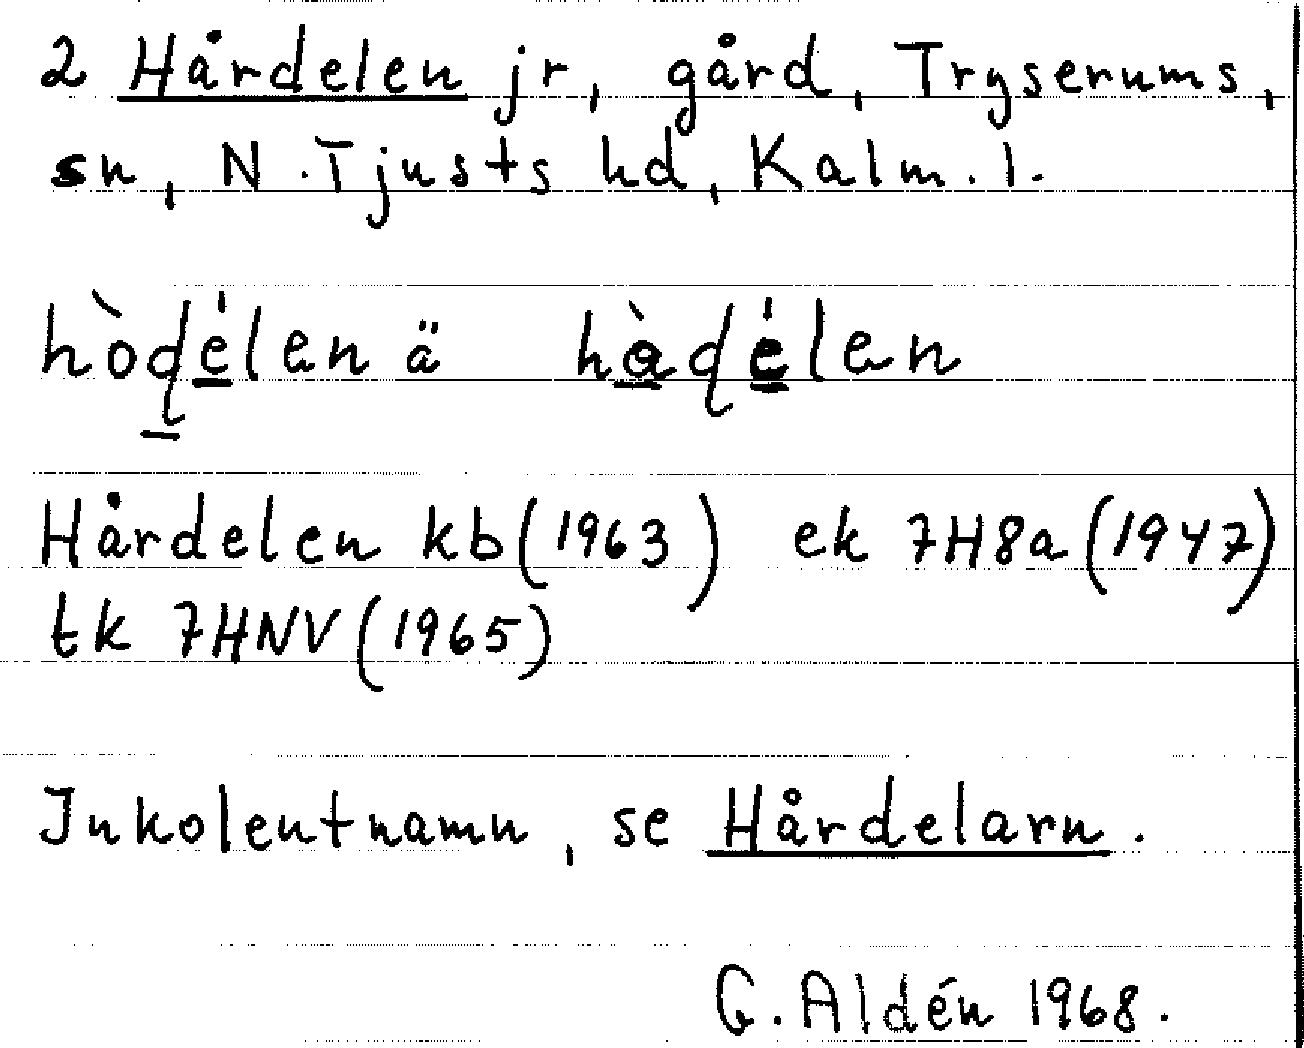 2 Hårdelen jr, gård, Tryserums,
sn, N. Tjusts hd, Kalm. l.
hòɖélen ä hàɖélen
Hårdelen kb(1963) ek 7H8a(1947)
tk 7HNV(1965)
Inkolentnamn, se Hårdelarn.
G. Aldén 1968.